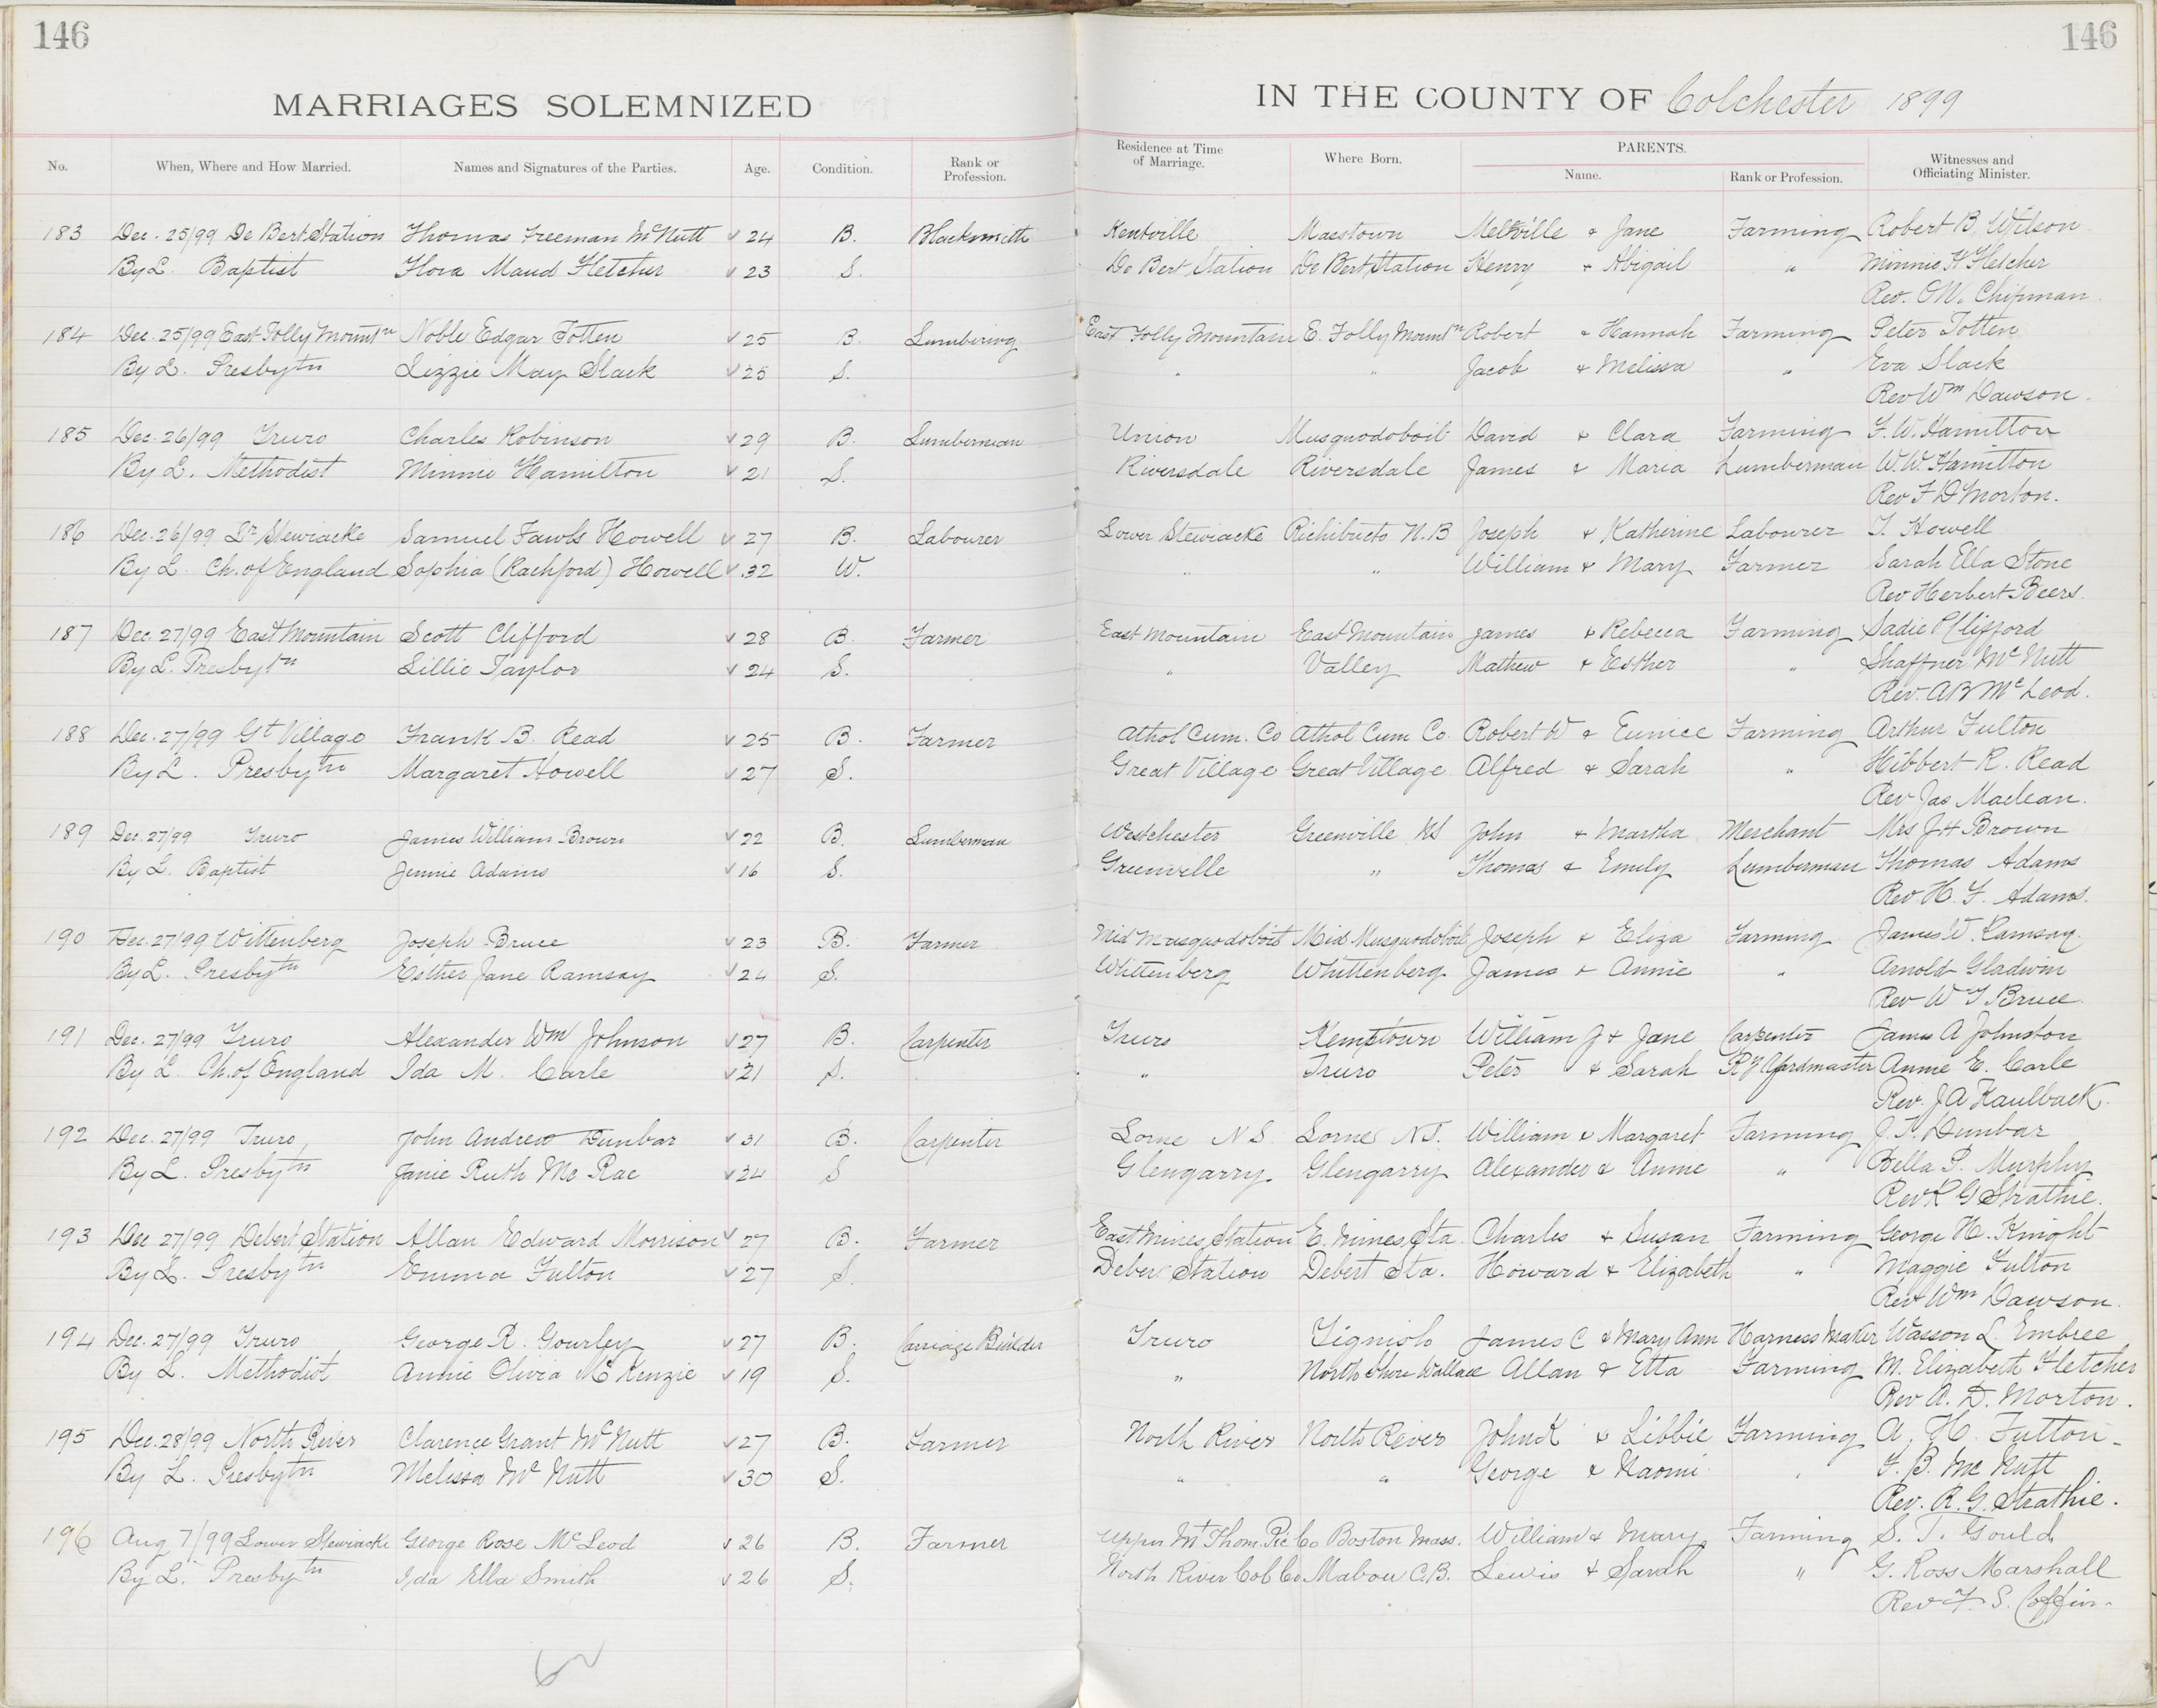 146
146
MARRIAGES SOLEMNIZED
IN THE COUNTY OF Colchester 1899
No. When, Where and How Married. Names and Signatures of the Parties. Age. Condition. Rank or Profession. Residence at Time of Marriage. Where Born. PARENTS. Name. Rank or Profession. Witnesses and Officiating Minister.
183 Dec. 25/99 De Bert Station Thomas Freeman McNutt √ 24 B. Blacksmith Kentville Masstown Melville & Jane Farming Robert B. Wilson
By L. Baptist Flora Maud Fletcher √ 23 S. De Bert Station De Bert Station Henry & Abigail " Minnie H Fletcher
Rev. O.N. Chipman
184 Dec. 25/99 East Folly Mountn Noble Edgar Totten √ 25 B. Lumbering East Folly Mountain E. Folly Mountn Robert & Hannah Farming Peter Totten
By L. Presbytn Lizzie May Slack √ 25 S. " " Jacob & Melissa " Eva Slack
Rev Wm Dawson.
185 Dec. 26/99 Truro Charles Robinson √ 29 B. Lumberman Union Musquodoboit David & Clara Farming F. W. Hamilton
By L. Methodist Minnie Hamilton √ 21 S. Riversdale Riversdale James & Maria Lumberman W. W. Hamilton
Rev F D Morton.
186 Dec. 26/99 Lr Stewiacke Samuel Fawls Howell √ 27 B. Labourer Lower Stewiacke Richibucto N.B Joseph & Katherine Labourer T. Howell
By L Ch. of England Sophia (Rachford) Howell √ 32 W. " " William & Mary Farmer Sarah Ella Stone
Rev Herbert Beers.
187 Dec. 27/99 East Mountain Scott Clifford √ 28 B. Farmer East Mountain East Mountain James & Rebecca Farming Sadie P Clifford
By L. Presbytn Lillie Taylor √ 24 S. " Valley Mathew & Esther " Shaffner McNutt
Rev. A B McLeod.
188 Dec. 27/99 Gt Village Frank B. Read √ 25 B. Farmer Athol Cum. Co Athol Cum Co. Robert W & Eunice Farming Arthur Fulton
By L. Presbytn Margaret Howell √ 27 S. Great Village Great Village Alfred & Sarah " Hibbert R. Read
Rev Jas Maclean.
189 Dec. 27/99 Truro James William Brown √ 22 B. Lumberman Westchester Greenville NS John & Martha Merchant Mrs J H Brown
By L. Baptist Jennie Adams √ 16 S. Greenville " Thomas & Emily Lumberman Thomas Adams
Rev H. F. Adams.
190 Dec. 27/99 Wittenberg Joseph Bruce √ 23 B. Farmer Mid Musquodoboit Mid Musquodoboit Joseph & Eliza Farming James W. Ramsay
By L. Presbytn Esther Jane Ramsay √ 24 S. Whittenberg Whittenberg James & Annie " Arnold Gladwin
Rev W T Bruce.
191 Dec. 27/99 Truro Alexander Wm Johnson √ 27 B. Carpenter Truro Kemptown William J & Jane Carpenter James A Johnston
By L. Ch. of England Ida M. Carle √ 21 S. " Truro Peter & Sarah R Y Yardmaster Annie E. Carle
Rev. J A Kaulback.
192 Dec. 27/99 Truro John Andrew Dunbar √ 31 B. Carpenter Lorne N S. Lorne N S. William & Margaret Farming J. T. Dunbar
By L. Presbytn Janie Ruth McRae √ 24 S Glengarry. Glengarry Alexander & Annie " Bella P. Murphy
Rev R G Strathie.
193 Dec 27/99 Debert Station Allan Edward Morrison √ 27 B. Farmer East Mines Station E. Mines Sta. Charles & Susan Farming George H. Knight
By L. Presbytn Emma Fulton √ 27 S. Debert Station Debert Sta. Howard & Elizabeth " Maggie Fulton
Rev Wm Dawson.
194 Dec. 27/99 Truro George R. Gourley √ 27 B. Carriage Builder Truro Tignish James C & Mary Ann Harness Maker Wasson L. Embree
By L. Methodist Annie Olivia McKenzie √ 19 S. " North Shore Wallace Allan & Etta Farming M. Elizabeth Fletcher
Rev A. D. Morton.
195 Dec. 28/99 North River Clarence Grant McNutt √ 27 B. Farmer North River North River John K & Libbie Farming A. H. Fulton
By L. Presbytn Melissa McNutt √ 30 S. " " George & Naomi " F. B. McNutt
Rev. R. G. Strathie.
196 Aug 7/99 Lower Stewiacke George Rose McLeod √ 26 B. Farmer Upper Mt Thom. Pic Co Boston Mass. William & Mary Farming S. T. Gould
By L. Presbytn Ida Ella Smith √ 26 S. North River Col Co Mabou C.B. Lewis & Sarah " G. Ross Marshall
Rev F. S. Coffin.